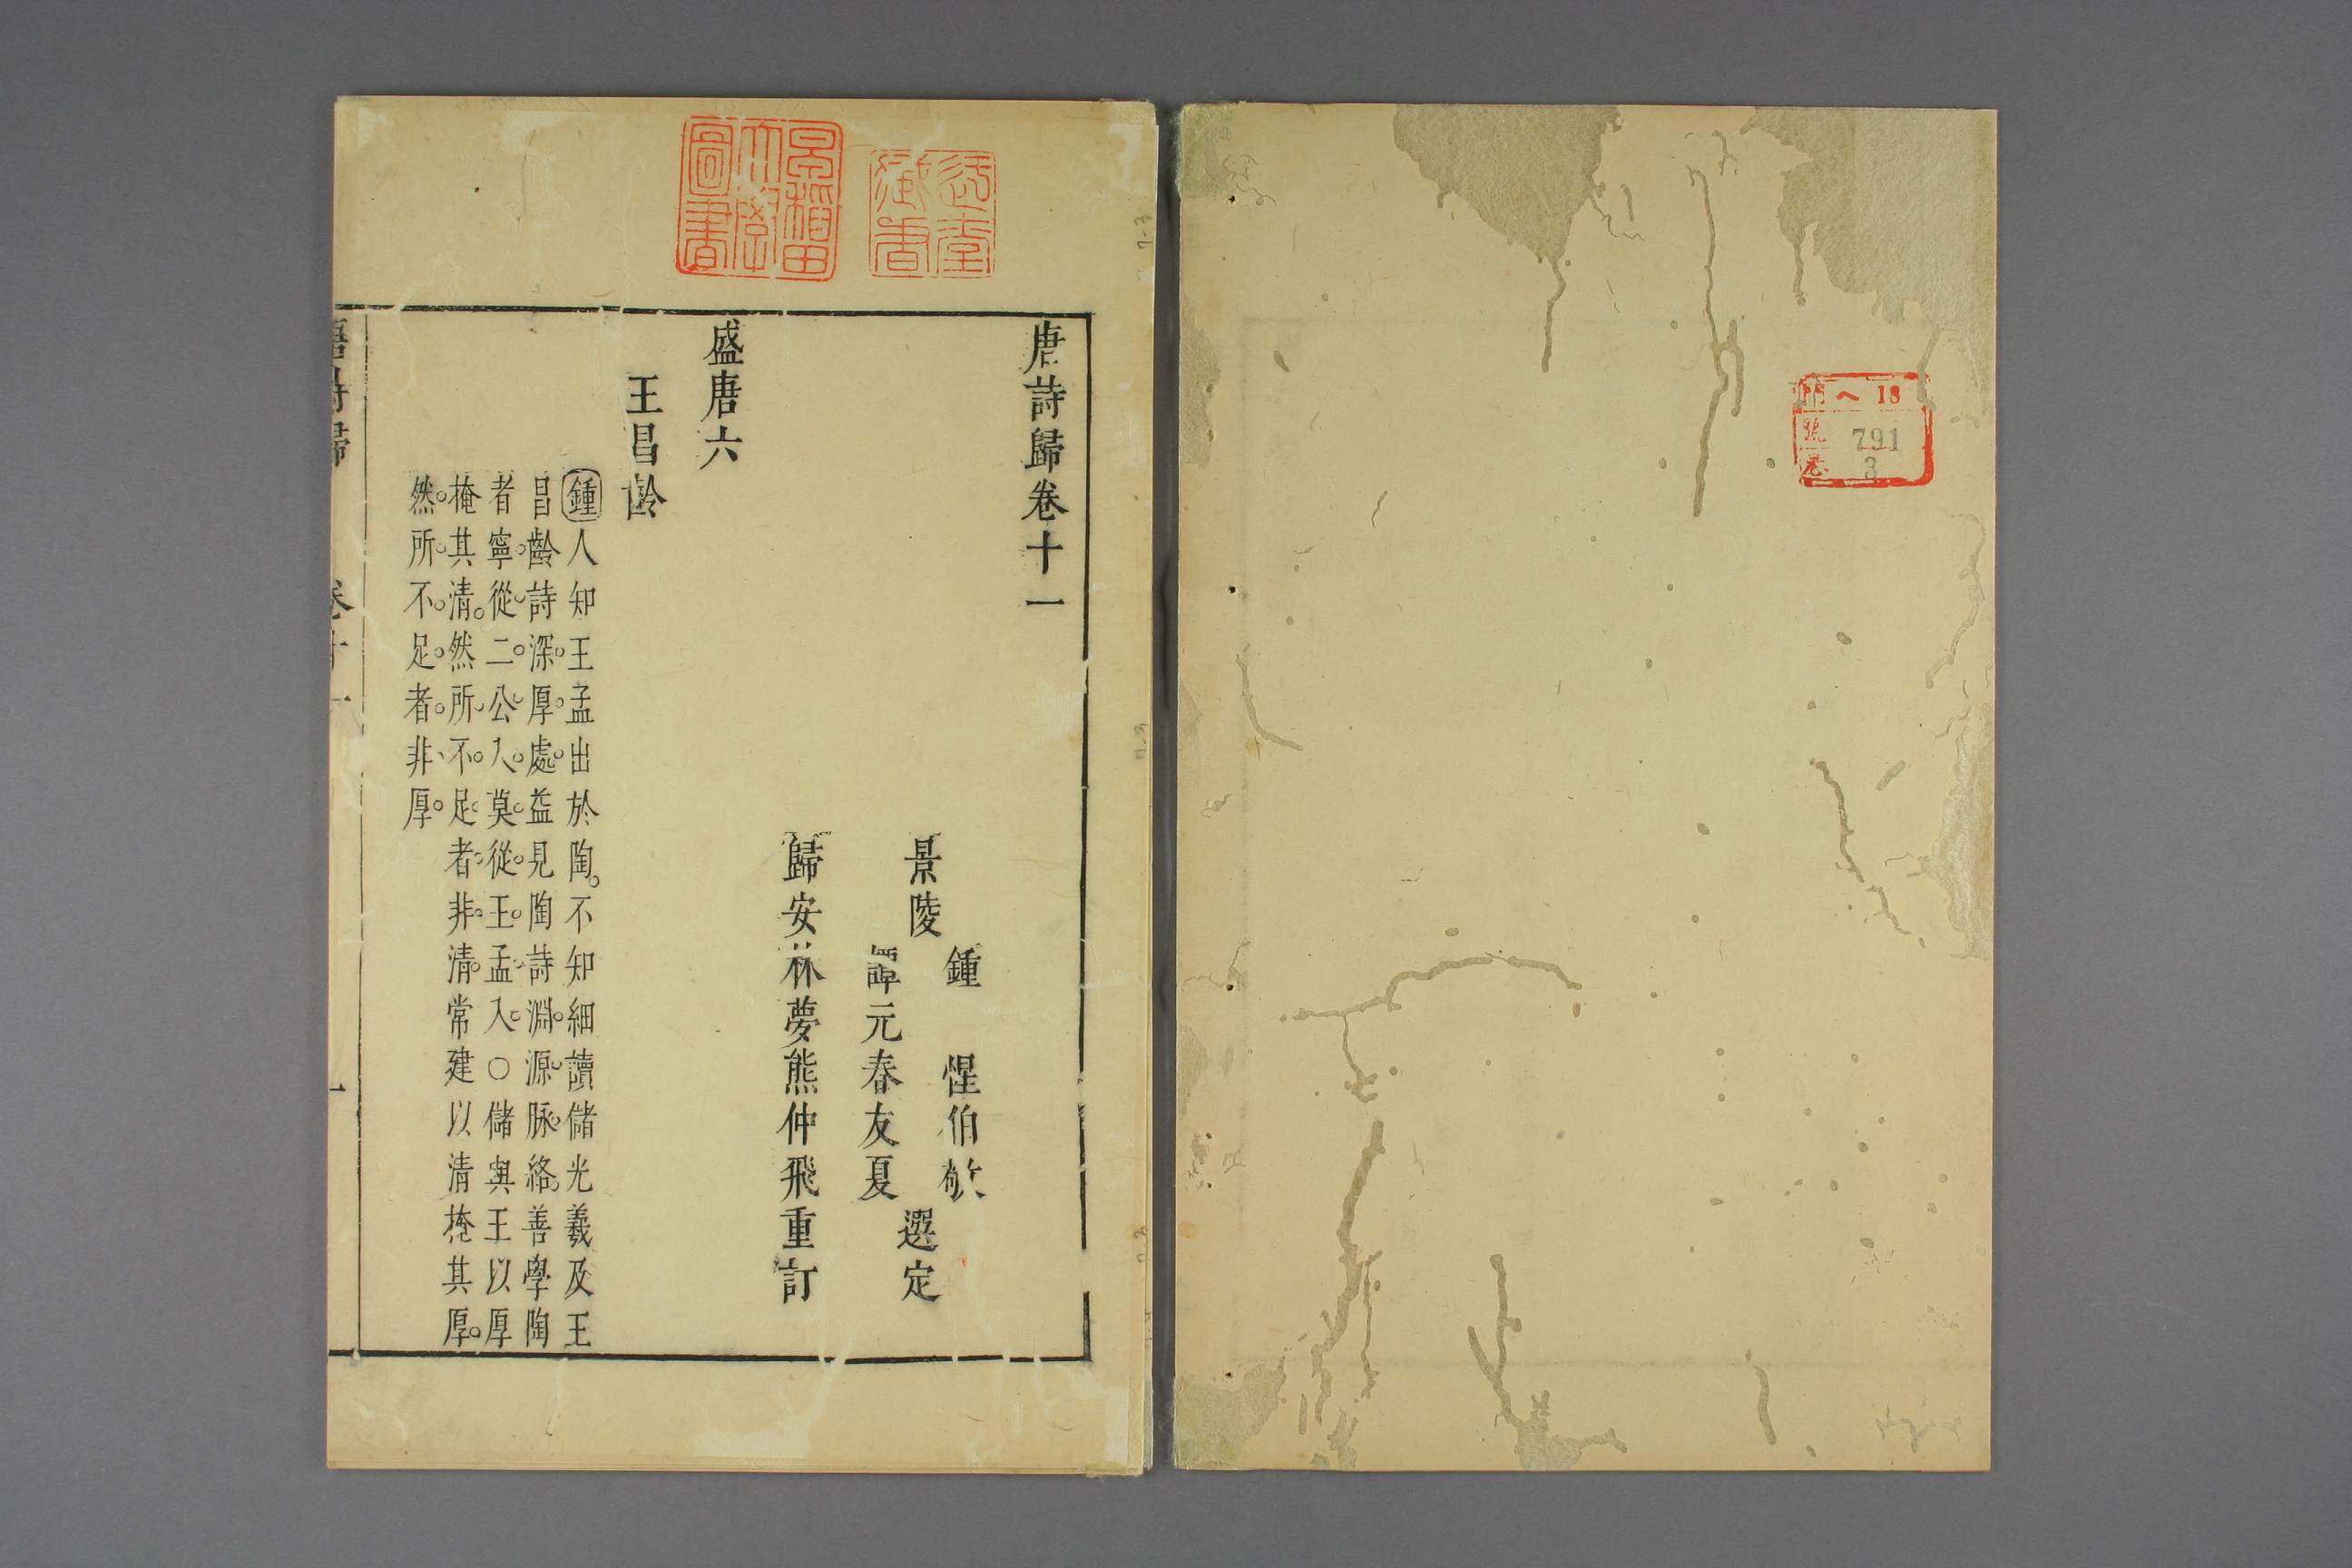 門 ヘ 18
號 791
卷 3
早稲田
大學
圖書
逍堂
藏書
唐詩歸卷十一
景陵
鍾 惺伯敬
譚元春友夏
選定
歸安林夢熊仲飛重訂
盛唐六
王昌齡
鍾人知王孟出於陶。不知細讀儲光羲及王
昌齡詩深厚處益見陶詩淵源脉絡善學陶
者寧從二公入莫從王孟入○儲與王以厚
掩其清然所不足者非清常建以清掩其厚
然所不足者非厚
唐詩歸 卷十一 一